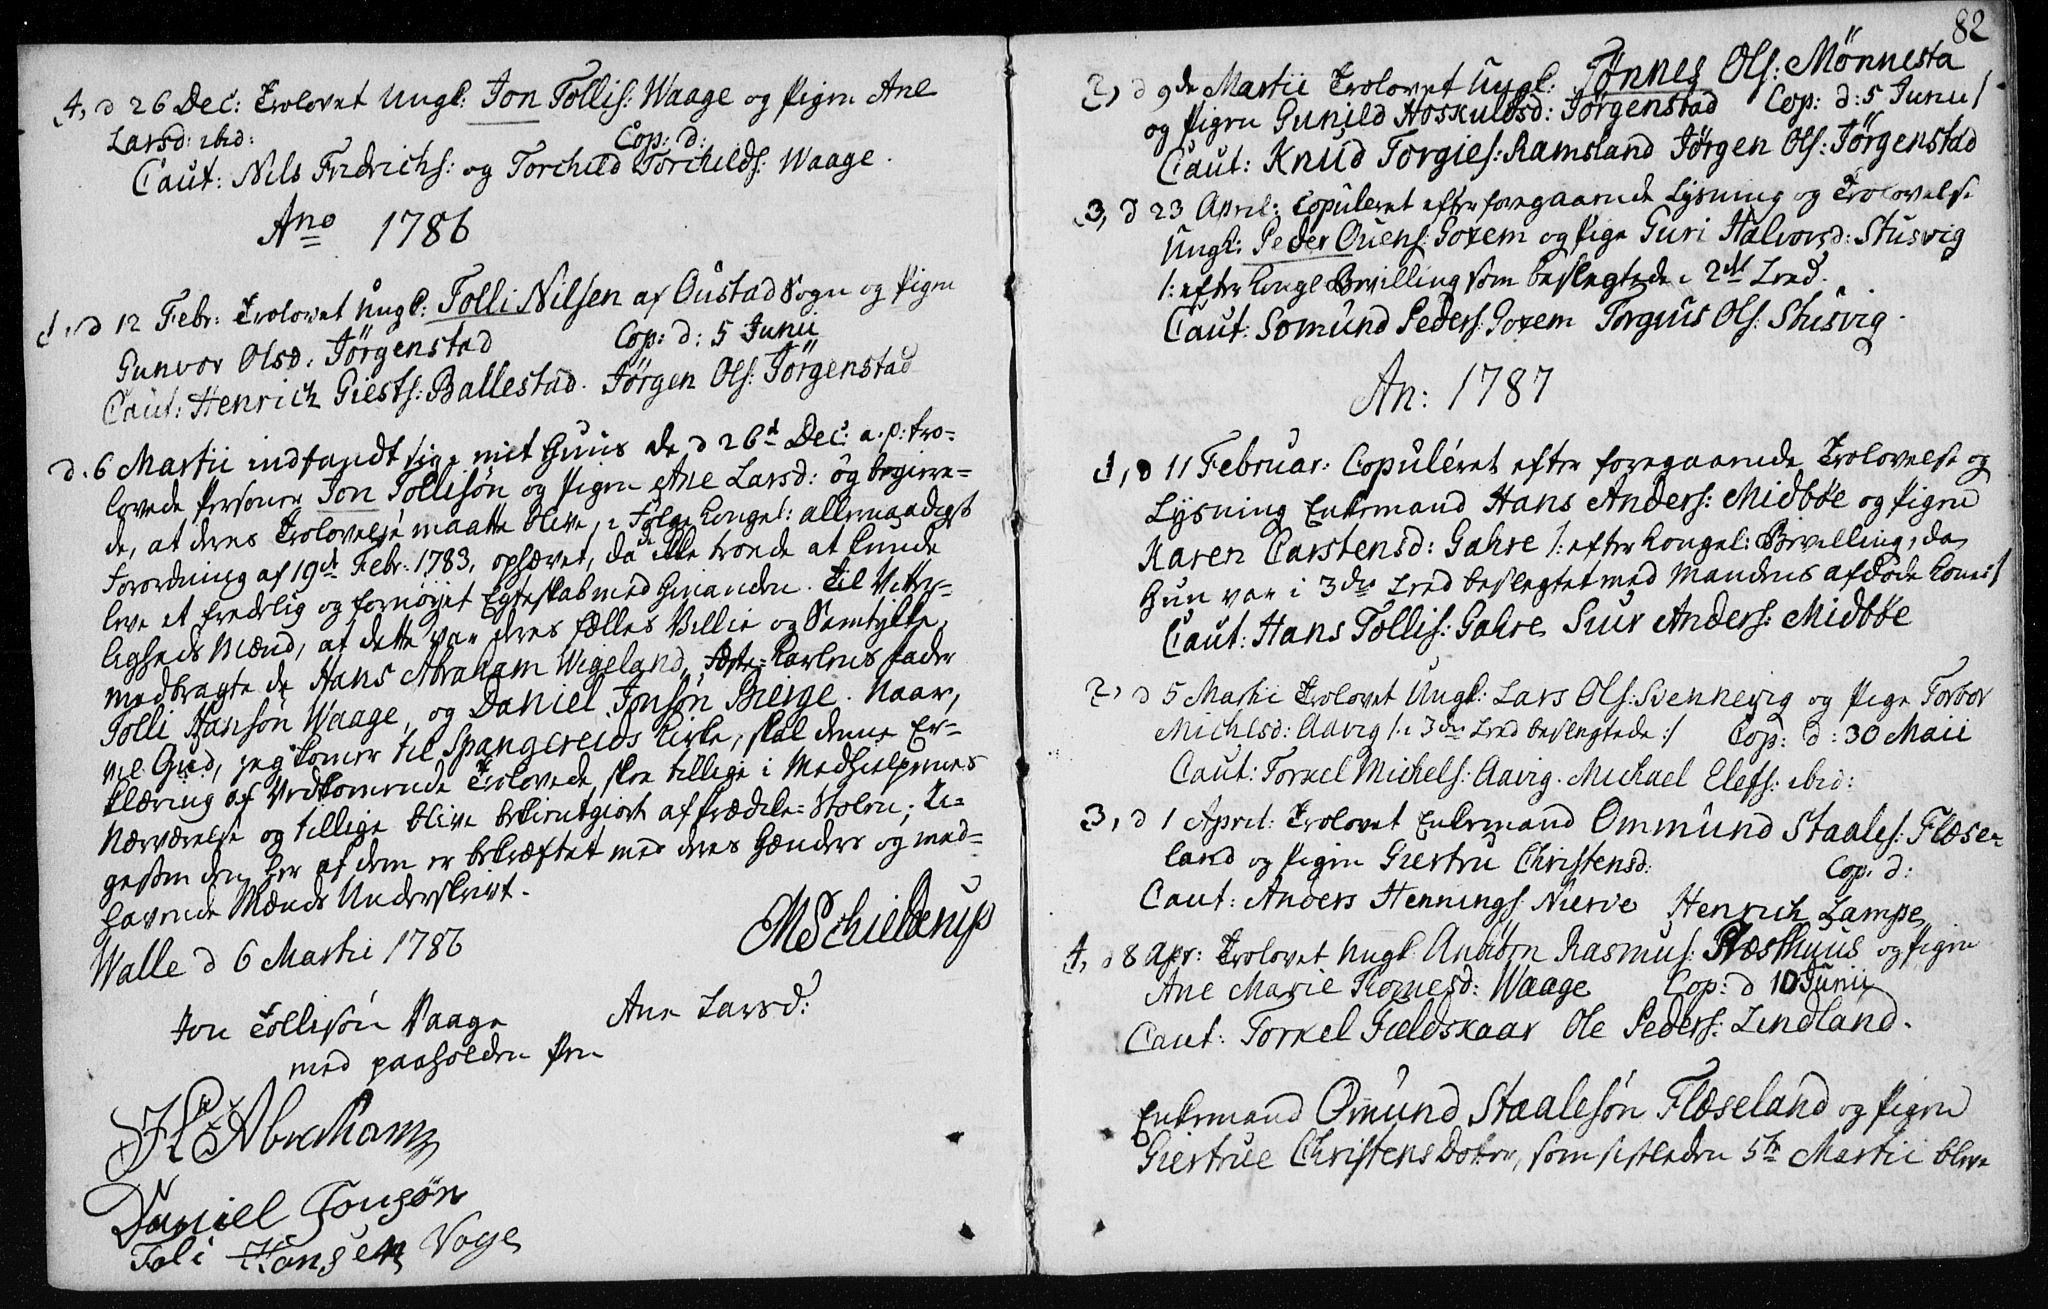 4, d 26 Dec: Trolovet Ungk: Jon Tollis: Waage og Pigen Ane
Larsd: ibid: Cop: d:
Caut: Nils Fridrichs: og Torchild Torchilds: Waage.
Ano 1786
1, d 12 Febr: Trolovet Ungk: Tolli Nilsen af Oustad Sogn og Pigen
Gunvor Olsd: Jörgenstad Cop: d: 5 Junii
Caut: Henrich Giests: Ballestad. Jörgen Ols: Jörgenstad
d. 6 Martii indfandt sig i mit Huus de d 26d Dec: a. p. tro-
lovede Personer Jon Tollisøn og Pigen Ane Larsd: og begiere-
de, at deres Trolovelse maatte blive, i Følge Kongel: allernaadigst
Forordning af 19de Febr: 1783, ophævet, da de ikke troede at kunde
leve et fredelig og fornøyet Egteskab med hinanden. Til Vitter-
ligheds Mænd, at dette var deres fælles Villie og Samtykke,
medbragte de Hans Abraham Wigeland, Karlens Fader
Tolli Hansøn Waage, og Daniel Jonsøn Bierge. Naar,
vil Gud, jeg komer til Spangereids Kirke, skal denne Er-
klæring af Vedkomende Trolovede skee tillige i Medhielpernes
Nærværelse og tillige blive bekientgiort af Prædike-Stolen; Li-
gesom den her af dem er bekræftet med deres Hænders og med-
havende Mænds Underskrivt.
Walle d 6 Martii 1786 MSchielderup
Jon Tollisön Vaage Ane Larsd:
med paaholden Pen
H Abrahams
Daniel Jonsøn
Toli Hansen Voge
82
2, d 9de Martii Trolovet Ungk: Tönnes Ols: Mönnesta
og Pigen Gunild Hoskuldsd: Jörgenstad Cop: d: 5 Junii /
Caut: Knud Torgies: Ramsland Jørgen Ols: Jørgenstad
3, d 23 April: Copuleret efter foregaaende Lysning og Trolovelse
Ungk: Peder Ouens: Goxem og Pige Guri Halvorsd: Stusvig
/: efter Kongl Bevilling som beslegtede i 2det Leed.
Caut: Somund Peders: Goxem Torgiuus Ols: Stusvig.
An: 1787
1, d 11 Februar: Copuleret efter foregaaende Trolovelse og
Lysning Enkemand Hans Anders: Midbøe og Pigen
Karen Carstensd: Gahre /: efter Kongel: Bevilling, da
hun var i 3die Leed beslegtet med Mandens afdøde Kone :/
Caut: Hans Tollis: Gahre Siur Anders: Midbøe
2, d 5 Martii Trolovet Ungk: Lars Ols: Svennevig og Pige Torbor
Michelsd: Aavig /: i 3die Leed beslegtede :/ Cop: d: 30 Maii
Caut: Torkel Michels: Aavig. Michael Elefs: ibid:
3, d 1 April: Trolovet Enkemand Ommund Staales: Flæse-
land og Pigen Giertru Christensd: Cop: d:
Caut: Anders Hennings: Nierve Henrich Lampe
4, d 8 Apr: Trolovet Ungk: Anbiörn Rasmus: Præsthuus og Pigen
Ane Marie Tiomesd: Waage Cop: d 10 Junii
Caut: Torkel Gieldskaar Ole Peders: Lindland.
Enkemand Omund Staalesön Flæseland og Pigen
Giertrue Christens Dotter, som sistleden 5te Martii bleve